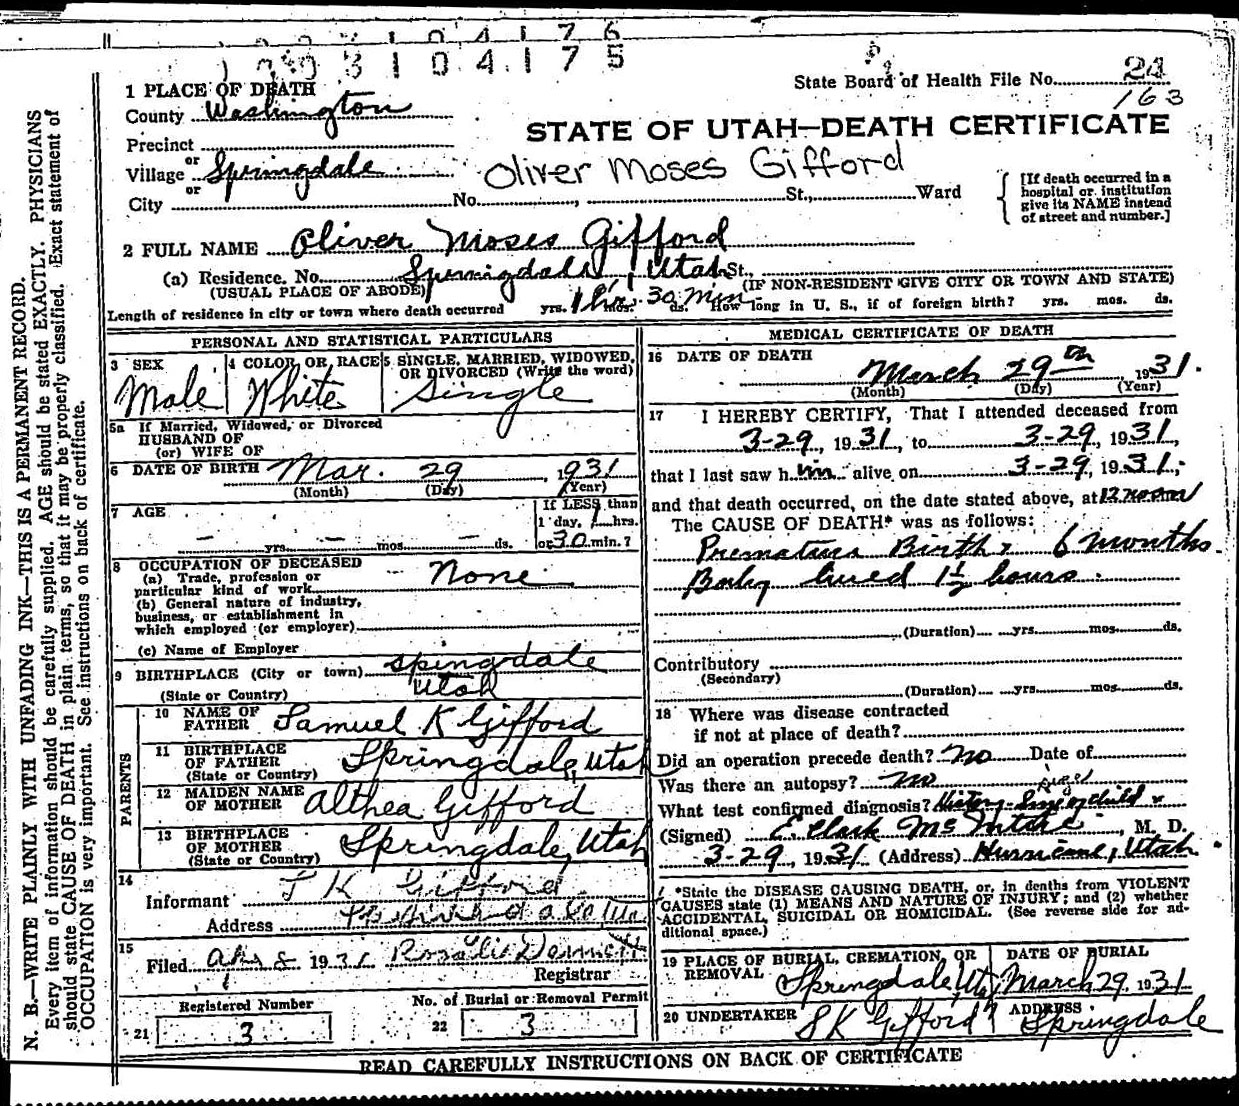 1931104176
1931104175
State Board of Health File No. 24
163
1 PLACE OF DEATH
County Washington
STATE OF UTAH—DEATH CERTIFICATE
Precinct
or
Village Springdale
Oliver Moses Gifford
or
City No. , St., Ward
[If death occurred in a hospital or institution give its NAME instead of street and number.]
2 FULL NAME Oliver Moses Gifford
(a) Residence. No. Springdale, Utah St.,
(USUAL PLACE OF ABODE) (IF NON-RESIDENT GIVE CITY OR TOWN AND STATE)
Length of residence in city or town where death occurred yrs. 1 hr. mos. 30 Min ds. How long in U. S., if of foreign birth? yrs. mos. ds.
PERSONAL AND STATISTICAL PARTICULARS
3 SEX
Male
4 COLOR OR RACE
White
5 SINGLE, MARRIED, WIDOWED,
OR DIVORCED (Write the word)
Single
5a If Married, Widowed, or Divorced
HUSBAND OF
(or) WIFE OF
6 DATE OF BIRTH Mar. 29, 1931
(Month) (Day) (Year)
7 AGE
— yrs. — mos. — ds.
If LESS than
1 day, 1 hrs.
or 30 min.?
8 OCCUPATION OF DECEASED
(a) Trade, profession or
particular kind of work None
(b) General nature of industry,
business, or establishment in
which employed (or employer)
(c) Name of Employer
9 BIRTHPLACE (City or town) Spingdale
(State or Country) Utah
PARENTS
10 NAME OF
FATHER Samuel K Gifford
11 BIRTHPLACE
OF FATHER Springdale, Utah
(State or Country)
12 MAIDEN NAME
OF MOTHER Althea Gifford
13 BIRTHPLACE
OF MOTHER Springdale, Utah
(State or Country)
14
Informant S K Gifford
Address
15
Filed Apr 8 1931 Rosalie Dennett
Registrar
Registered Number
21 3
No. of Burial or Removal Permit
22 3
MEDICAL CERTIFICATE OF DEATH
16 DATE OF DEATH
March 29th, 1931.
(Month) (Day) (Year)
17 I HEREBY CERTIFY, That I attended deceased from
3-29, 1931, to 3-29, 1931,
that I last saw him alive on 3-29, 1931,
and that death occurred, on the date stated above, at 12 noon
The CAUSE OF DEATH* was as follows:
Premature Birth, 6 months.
Baby lived 1½ hours.
(Duration) yrs. mos. ds.
Contributory
(Secondary)
(Duration) yrs. mos. ds.
18 Where was disease contracted
if not at place of death?
Did an operation precede death? no Date of
Was there an autopsy? no
What test confirmed diagnosis? History - Size of child
(Signed) E. Clark McIntire, M. D.
3-29, 1931 (Address) Hurricane, Utah.
*State the DISEASE CAUSING DEATH, or, in deaths from VIOLENT
CAUSES state (1) MEANS AND NATURE OF INJURY; and (2) whether
ACCIDENTAL, SUICIDAL OR HOMICIDAL. (See reverse side for ad-
ditional space.)
19 PLACE OF BURIAL, CREMATION, OR
REMOVAL Springdale, Utah
DATE OF BURIAL
March 29, 1931
20 UNDERTAKER S K Gifford
ADDRESS
Springdale
READ CAREFULLY INSTRUCTIONS ON BACK OF CERTIFICATE
N. B.—WRITE PLAINLY WITH UNFADING INK—THIS IS A PERMANENT RECORD.
Every item of information should be carefully supplied. AGE should be stated EXACTLY. PHYSICIANS
should state CAUSE OF DEATH in plain terms, so that it may be properly classified. Exact statement of
OCCUPATION is very important. See instructions on back of certificate.